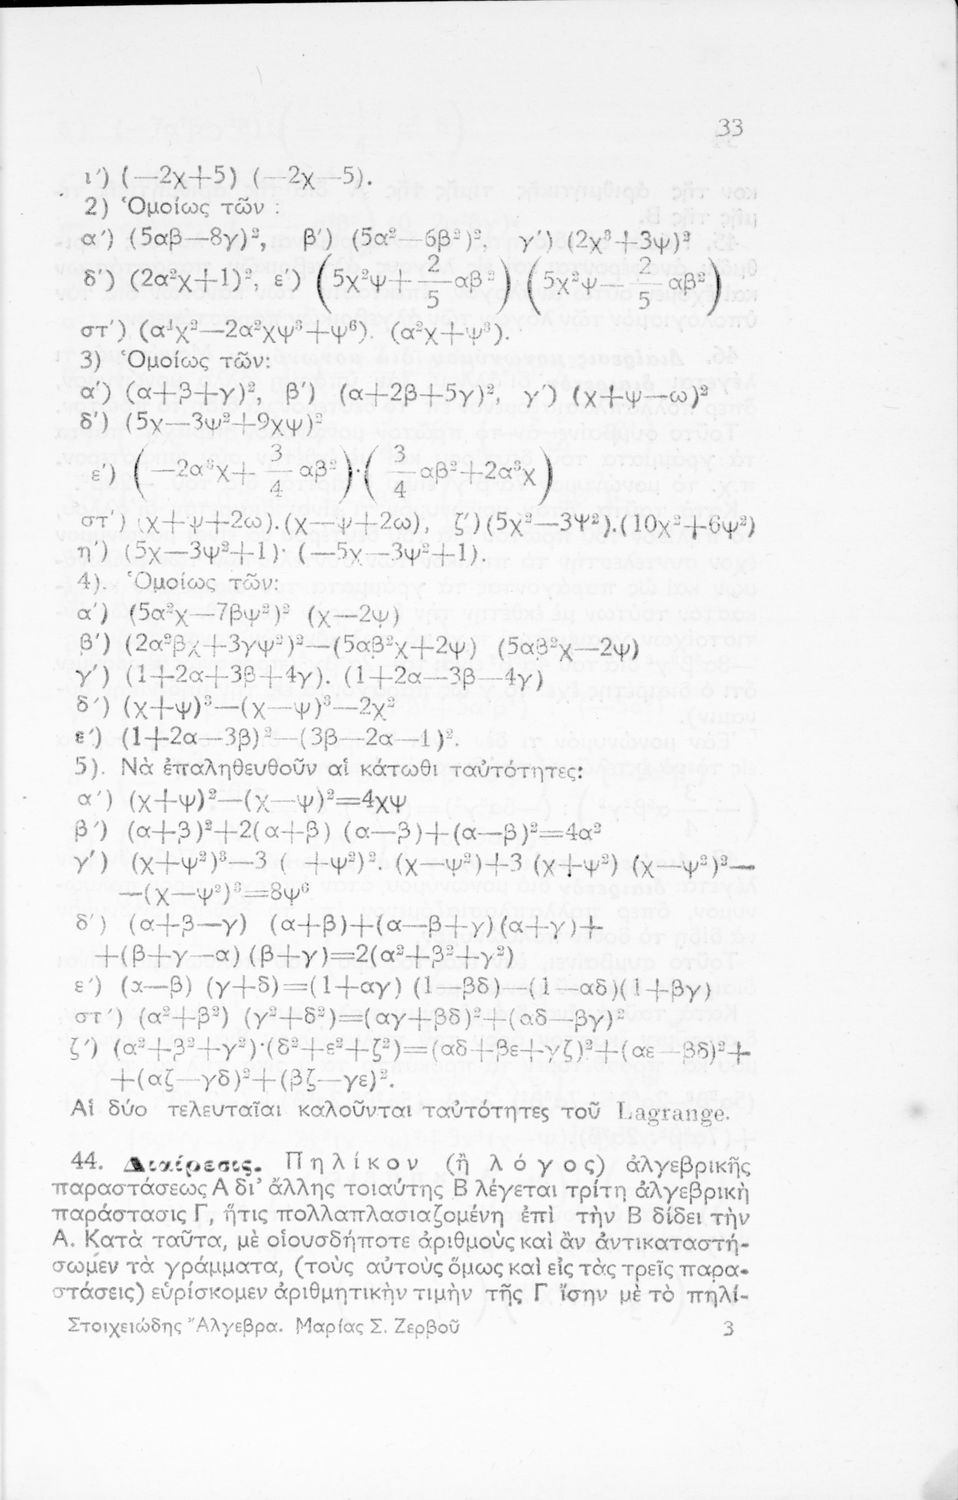 33
ι') (—2χ+5) (—2χ—5).
2) Ὁμοίως τῶν :
α') (5αβ—8γ)², β') (5α²—6β²)², γ') (2χ³+3ψ)²
δ') (2α²χ+1)², ε') (5χ²ψ+ 2/5 αβ²) (5χ²ψ— 2/5 αβ²)
στ') (α⁴χ²—2α²χψ³+ψ⁶). (α²χ+ψ³).
3) Ὁμοίως τῶν:
α') (α+β+γ)², β') (α+2β+5γ)², γ') (χ+ψ—ω)²
δ') (5χ—3ψ²+9χψ)²
ε') (—2α³χ+ 3/4 αβ²)·( 3/4 αβ²+2α³χ)
στ') (χ+ψ+2ω).(χ—ψ+2ω), ζ')(5χ²—3Ψ²).(10χ²+6ψ²)
η') (5χ—3ψ²+1)· (—5χ—3ψ²+1).
4). Ὁμοίως τῶν:
α') (5α²χ—7βψ²)² (χ—2ψ)
β') (2α²βχ+3γψ²)²—(5αβ²χ+2ψ) (5αβ²χ—2ψ)
γ') (1+2α+3β+4γ). (1+2α—3β—4γ)
δ') (χ+ψ)³—(χ—ψ)³—2χ²
ε') (1+2α—3β)²—(3β—2α—1)².
5). Νὰ ἐπαληθευθοῦν αἱ κάτωθι ταὐτότητες:
α') (χ+ψ)²—(χ—ψ)²=4χψ
β') (α+β)²+2(α+β) (α—β)+(α—β)²=4α²
γ') (χ+ψ²)³—3 ( +ψ²)². (χ—ψ²)+3 (χ+ψ²) (χ—ψ²)²—
—(χ—ψ²)³=8ψ⁶
δ') (α+β—γ) (α+β)+(α—β+γ)(α+γ)+
+(β+γ—α) (β+γ)=2(α²+β²+γ²)
ε') (α—β) (γ+δ)=(1+αγ) (1—βδ)—(1—αδ)(1+βγ)
στ') (α²+β²) (γ²+δ²)=(αγ+βδ)²+(αδ—βγ)²
ζ') (α²+β²+γ²)·(δ²+ε²+ζ²)=(αδ+βε+γζ)²+(αε—βδ)²+
+(αζ—γδ)²+(βζ—γε)².
Αἱ δύο τελευταῖαι καλοῦνται ταὐτότητες τοῦ Lagrange.
44. Διαίρεσις. Πηλίκον (ἢ λόγος) ἀλγεβρικῆς
παραστάσεως Α δι' ἄλλης τοιαύτης Β λέγεται τρίτη ἀλγεβρικὴ
παράστασις Γ, ἥτις πολλαπλασιαζομένη ἐπὶ τὴν Β δίδει τὴν
Α. Κατὰ ταῦτα, μὲ οἱουσδήποτε ἀριθμοὺς καὶ ἂν ἀντικαταστή-
σωμεν τὰ γράμματα, (τοὺς αὐτοὺς ὅμως καὶ εἰς τὰς τρεῖς παρα-
στάσεις) εὑρίσκομεν ἀριθμητικὴν τιμὴν τῆς Γ ἴσην μὲ τὸ πηλί-
Στοιχειώδης Ἄλγεβρα. Μαρίας Σ. Ζερβοῦ 3